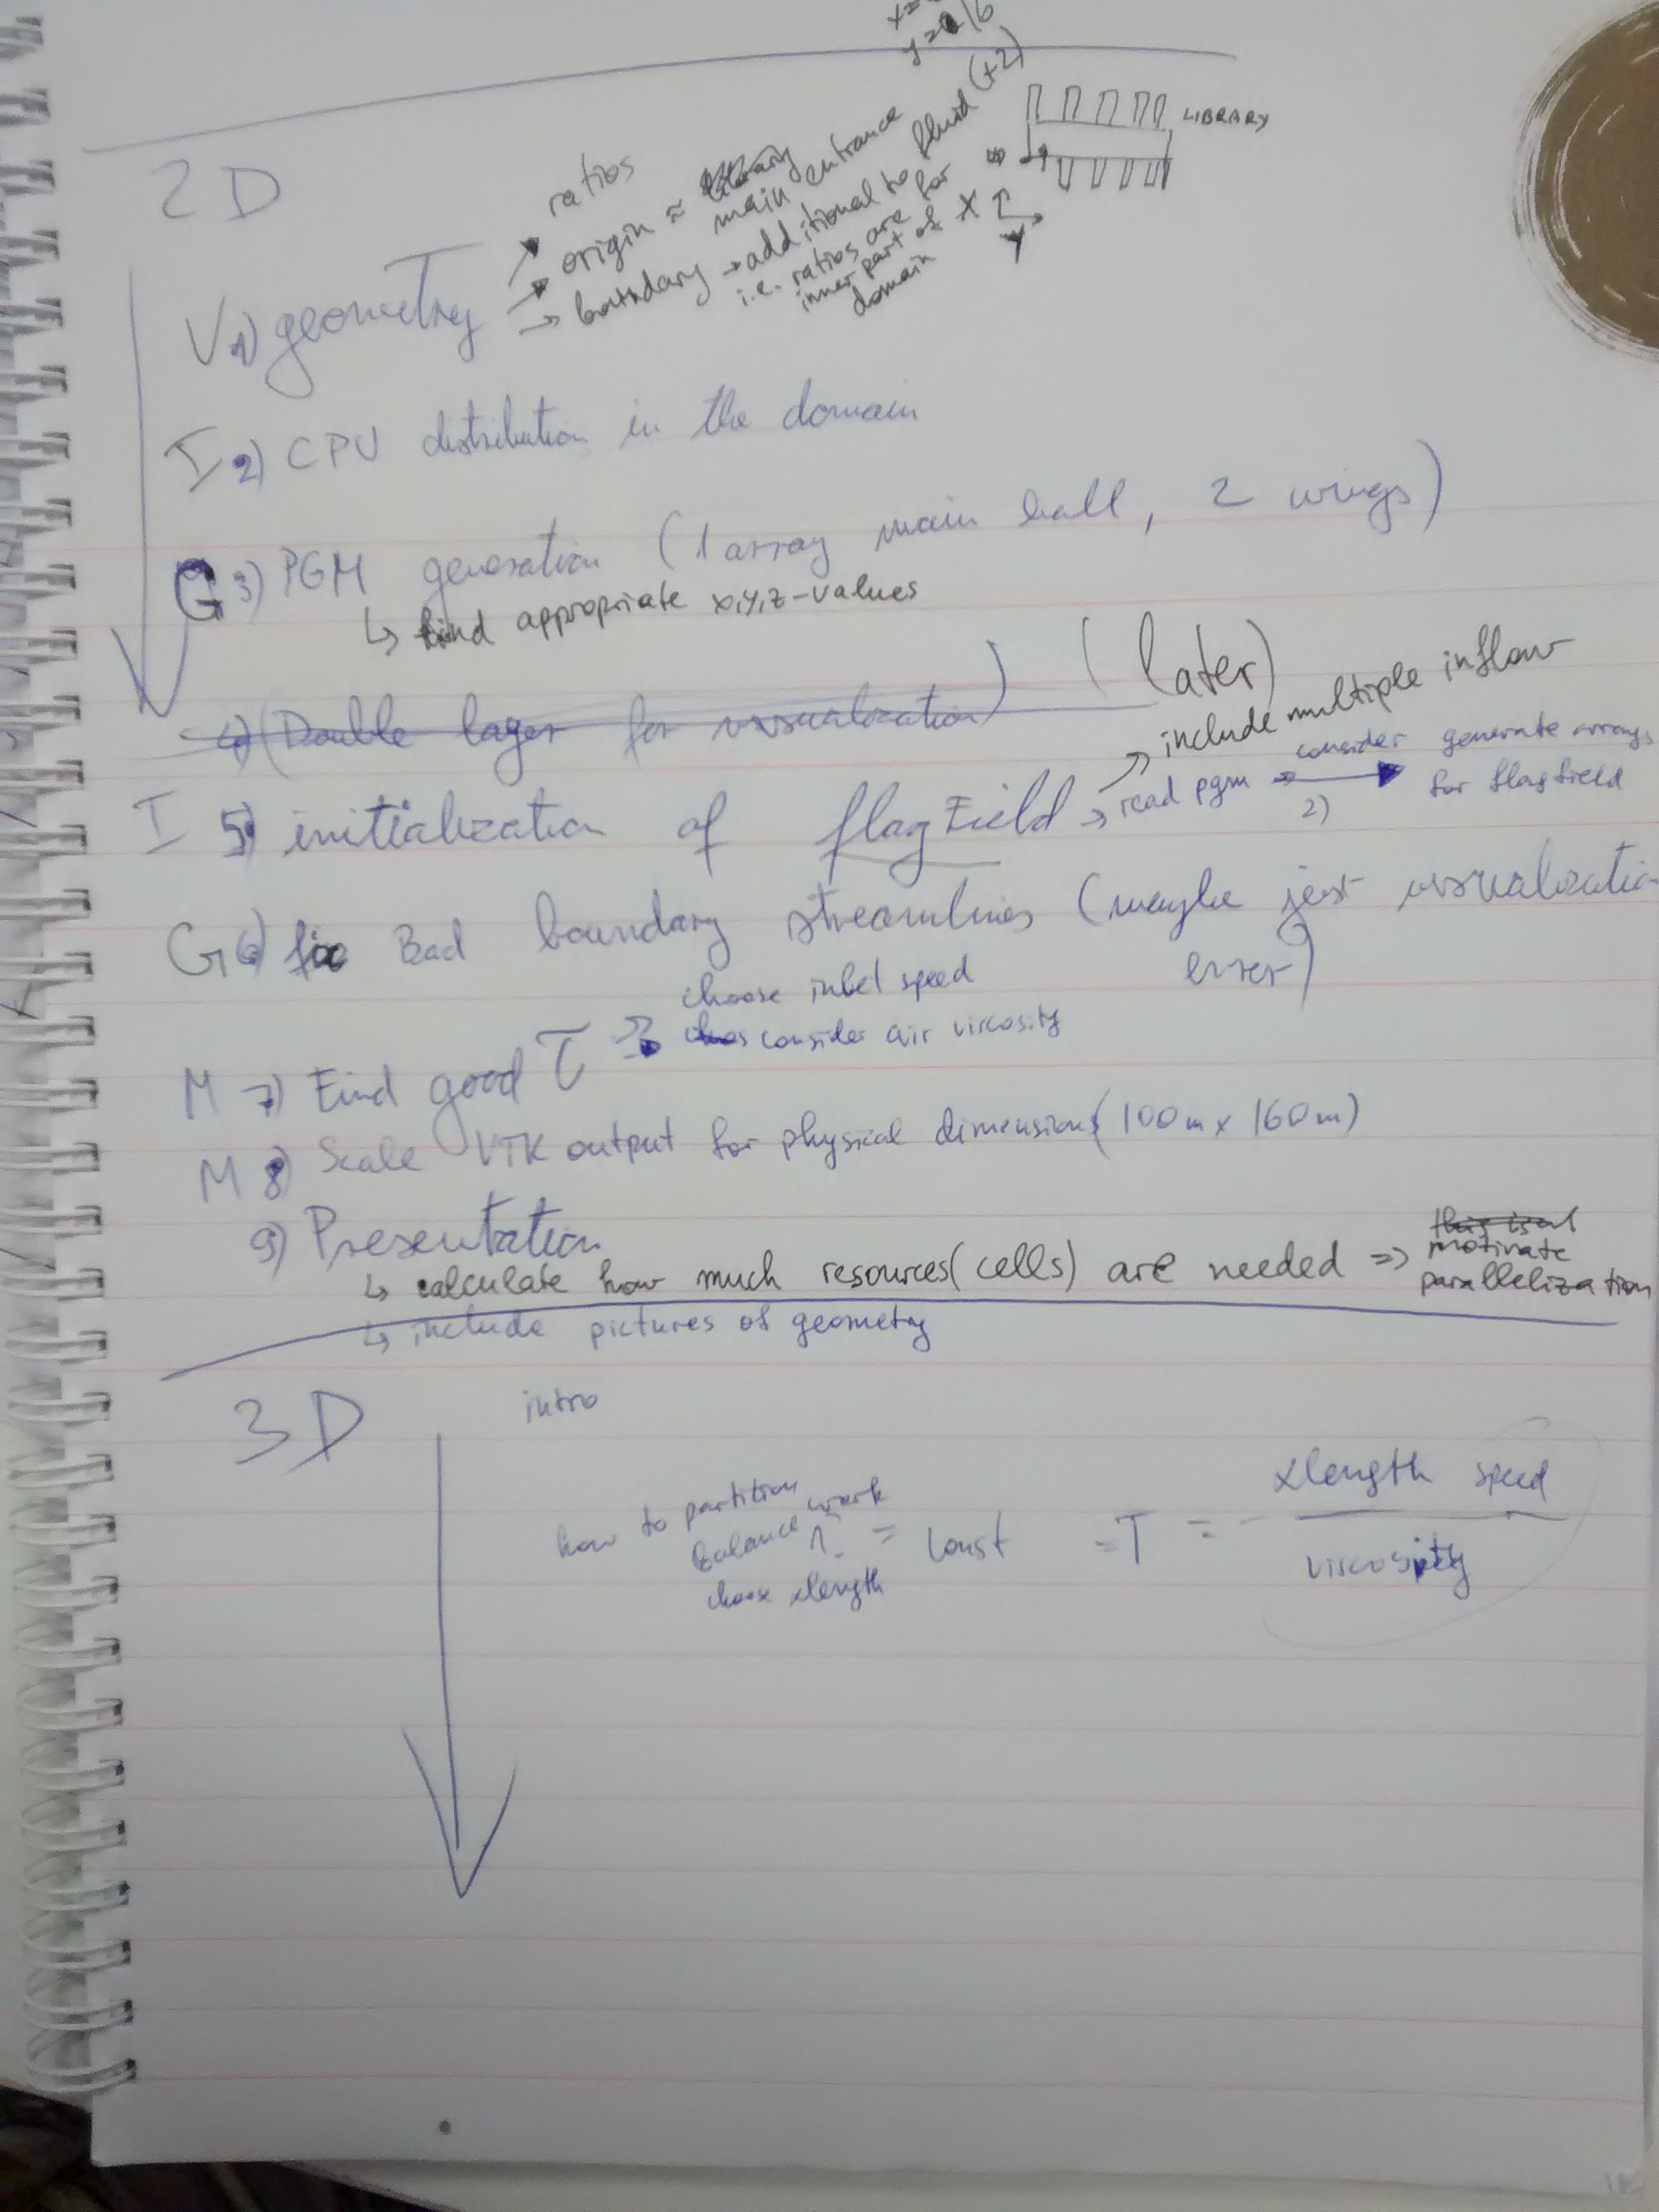 x=
y=16
2D
V 1) geometry
→ ratios
→ origin ≈ main entrance
→ boundary → additional to fluid (+2)
i.e. ratios are for
inner part of
domain
LIBRARY
X
Y
I 2) CPU distribution in the domain
G 3) PGM generation (1 array main hall, 2 wings)
↳ find appropriate x,y,z-values
4) (Double layer for visualization) (later)
I 5) initialization of flagField
→ include multiple inflow
→ read pgm → consider 2) → generate arrays
for flagfield
G 6) fix Bad boundary streamlines (maybe just visualizatio
error)
M 7) Find good τ
choose inlet speed
consider air viscosity
M 8) Scale VTK output for physical dimensions (100m x 160m)
9) Presentation
↳ calculate how much resources (cells) are needed => motivate
parallelization
↳ include pictures of geometry
3D
intro
how to partition
balance work
choose xlength
= const = T = xlength speed
viscosity